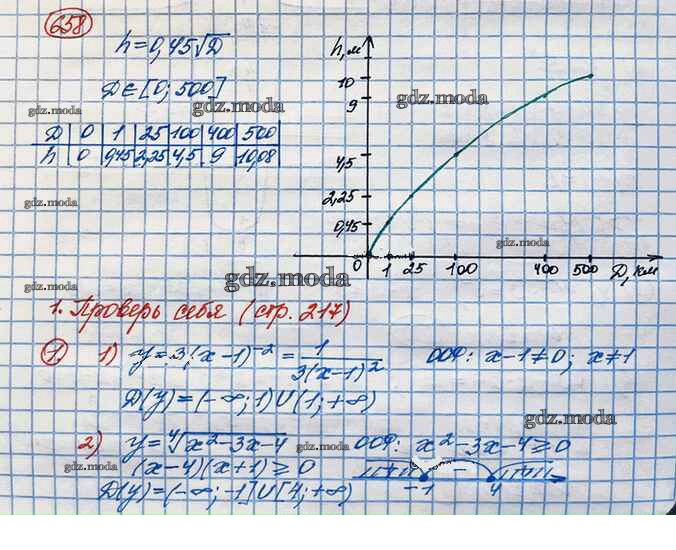 658
h = 0,45√D
D ∈ [0; 500]
D 0 1 25 100 400 500
h 0 0,45 2,25 4,5 9 10,08
h, м
10
9
4,5
2,25
0,45
0 1 25 100 400 500 D, км
1. Проверь себя (стр. 217)
1. 1) y = 3(x-1)⁻² = 1/3(x-1)² ООФ: x-1≠0; x≠1
D(y) = (-∞; 1)∪(1; +∞)
2) y = ⁴√x²-3x-4 ООФ: x²-3x-4≥0
(x-4)(x+1)≥0
-1 4
D(y) = (-∞; -1]∪[4; +∞)
gdz.moda
gdz.moda
gdz.moda
gdz.moda
gdz.moda
gdz.moda
gdz.moda
gdz.moda
gdz.moda
gdz.moda
gdz.moda
gdz.moda
gdz.moda